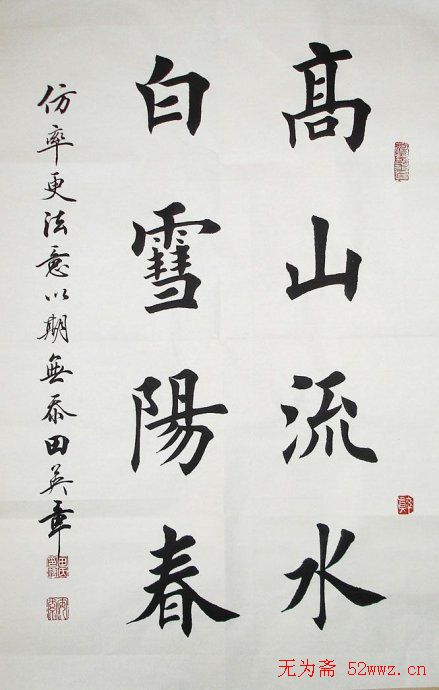 髙山流水
白雪陽春
仿率更法意以期無忝田英章
无为斋 52wwz.cn